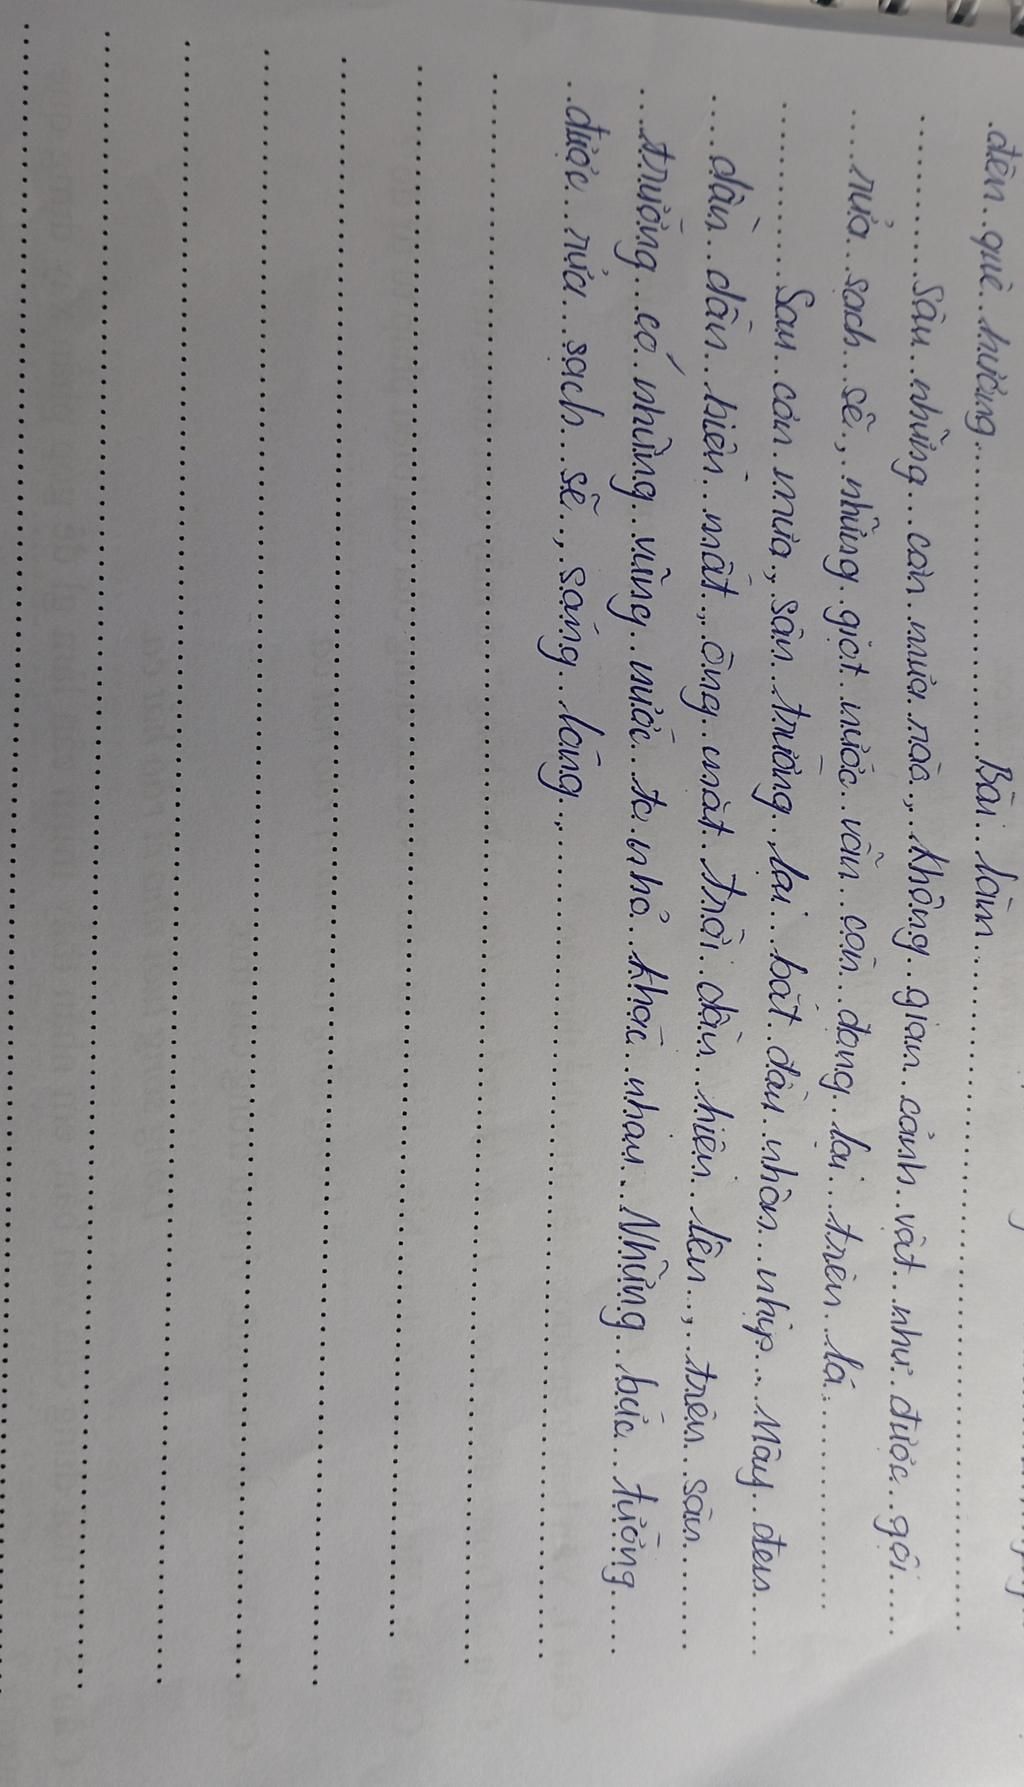 đến quê hương
Bài làm
Sau những cơn mưa rào, không gian cảnh vật như được gội
rửa sạch sẽ, những giọt nước vẫn còn đọng lại trên lá.
Sau cơn mưa, sân trường lại bắt đầu nhộn nhịp. Mây đen
dần dần biến mất, ông mặt trời dần hiện lên, trên sân
trường có những vũng nước to nhỏ khác nhau. Những bức tường
được rửa sạch sẽ, sáng loáng.